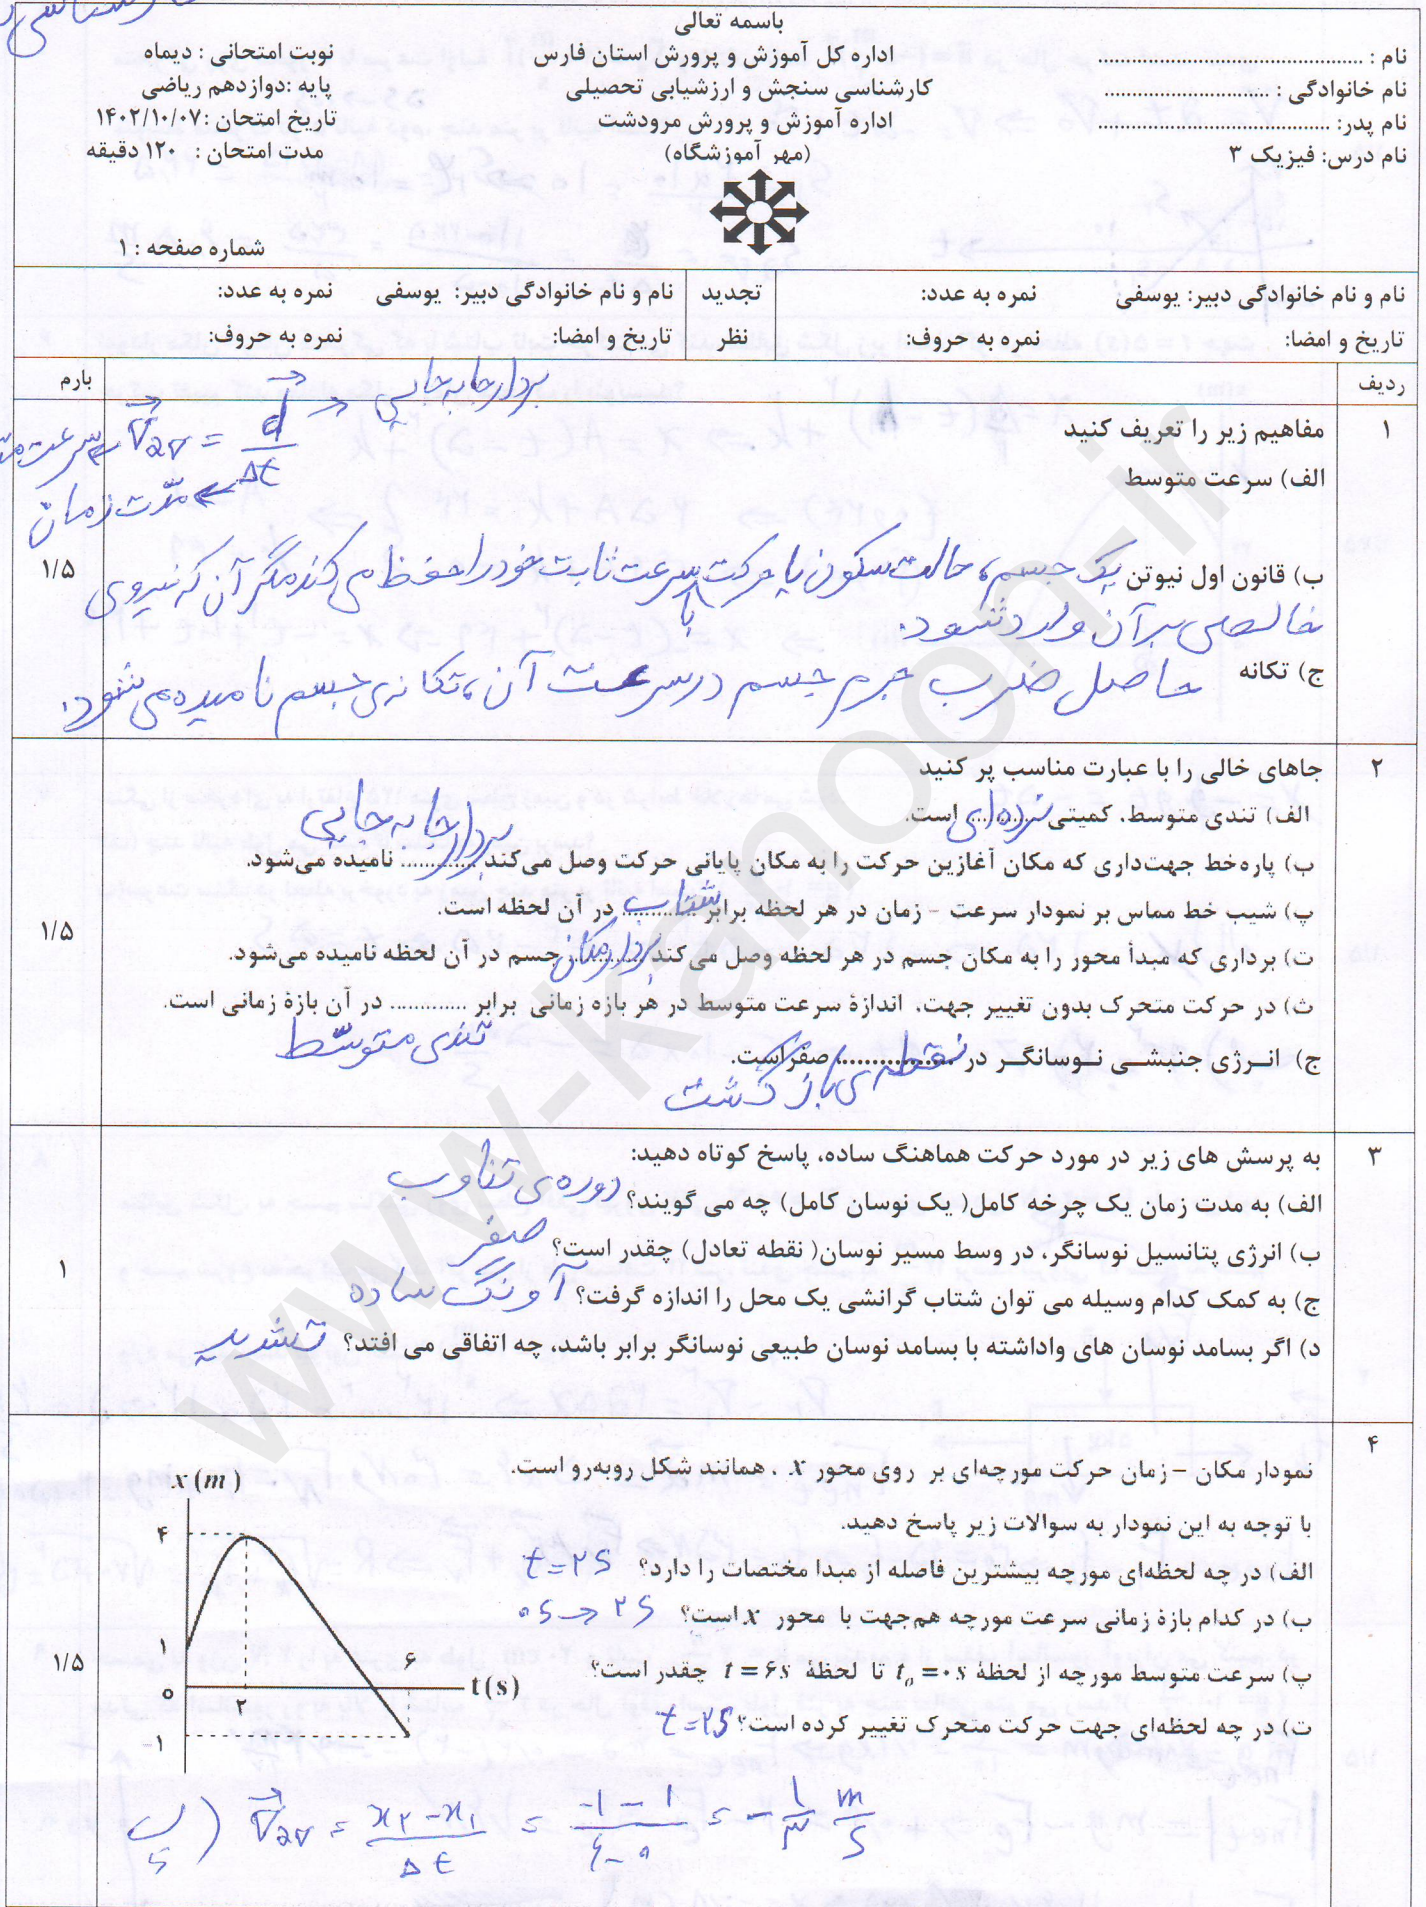 باسمه تعالی
نام : ........................
اداره کل آموزش و پرورش استان فارس
نوبت امتحانی : دیماه
نام خانوادگی : ........................
کارشناسی سنجش و ارزشیابی تحصیلی
پایه :دوازدهم ریاضی
نام پدر: ........................
اداره آموزش و پرورش مرودشت
تاریخ امتحان :۱۴۰۲/۱۰/۰۷
نام درس: فیزیک ۳
(مهر آموزشگاه)
مدت امتحان : ۱۲۰ دقیقه
شماره صفحه : ۱
نام و نام خانوادگی دبیر: یوسفی نمره به عدد:
تجدید
نام و نام خانوادگی دبیر: یوسفی نمره به عدد:
تاریخ و امضا: نمره به حروف:
نظر
تاریخ و امضا: نمره به حروف:
ردیف
بارم
بردار جابه جایی
۱
مفاهیم زیر را تعریف کنید
الف) سرعت متوسط
Vav = d / Δt
مدّت زمان
ب) قانون اول نیوتن یک جسم، حالت سکون یا حرکت با سرعت ثابت خود را حفظ می کند مگر آن که نیروی
خالصی بر آن وارد شود.
۱/۵
ج) تکانه حاصل ضرب جرم جسم در سرعت آن، تکانه ی جسم نامیده می شود.
۲
جاهای خالی را با عبارت مناسب پر کنید
الف) تندی متوسط، کمیتی نرده ای است.
ب) پاره‌خط جهت‌داری که مکان آغازین حرکت را به مکان پایانی حرکت وصل می‌کند بردار جابه جایی نامیده می‌شود.
پ) شیب خط مماس بر نمودار سرعت - زمان در هر لحظه برابر شتاب در آن لحظه است.
۱/۵
ت) برداری که مبدأ محور را به مکان جسم در هر لحظه وصل می‌کند بردار مکان جسم در آن لحظه نامیده می‌شود.
ث) در حرکت متحرک بدون تغییر جهت، اندازهٔ سرعت متوسط در هر بازه زمانی برابر ............ در آن بازهٔ زمانی است.
تندی متوسّط
ج) انـرژی جنبشـی نـوسانگـر در نقطه ی بازگشت صفر است.
۳
به پرسش های زیر در مورد حرکت هماهنگ ساده، پاسخ کوتاه دهید:
الف) به مدت زمان یک چرخه کامل( یک نوسان کامل) چه می گویند؟ دوره ی تناوب
ب) انرژی پتانسیل نوسانگر، در وسط مسیر نوسان( نقطه تعادل) چقدر است؟ صفر
۱
ج) به کمک کدام وسیله می توان شتاب گرانشی یک محل را اندازه گرفت؟ آونگ ساده
د) اگر بسامد نوسان های واداشته با بسامد نوسان طبیعی نوسانگر برابر باشد، چه اتفاقی می افتد؟ تشدید
۴
نمودار مکان – زمان حرکت مورچه‌ای بر روی محور x ، همانند شکل روبه‌رو است.
با توجه به این نمودار به سوالات زیر پاسخ دهید.
الف) در چه لحظه‌ای مورچه بیشترین فاصله از مبدا مختصات را دارد؟ t=۲s
ب) در کدام بازهٔ زمانی سرعت مورچه هم‌جهت با محور x است؟ ۰s → ۲s
پ) سرعت متوسط مورچه از لحظهٔ t₀=۰s تا لحظهٔ t=۶s چقدر است؟
ت) در چه لحظه‌ای جهت حرکت متحرک تغییر کرده است؟ t=۲s
۱/۵
x(m)
۴
۱
۰
۲
۶
t(s)
-۱
پ) Vav = x۲-x۱ / Δt = -۱-۱ / ۶-۰ = -۱/۳ m/s